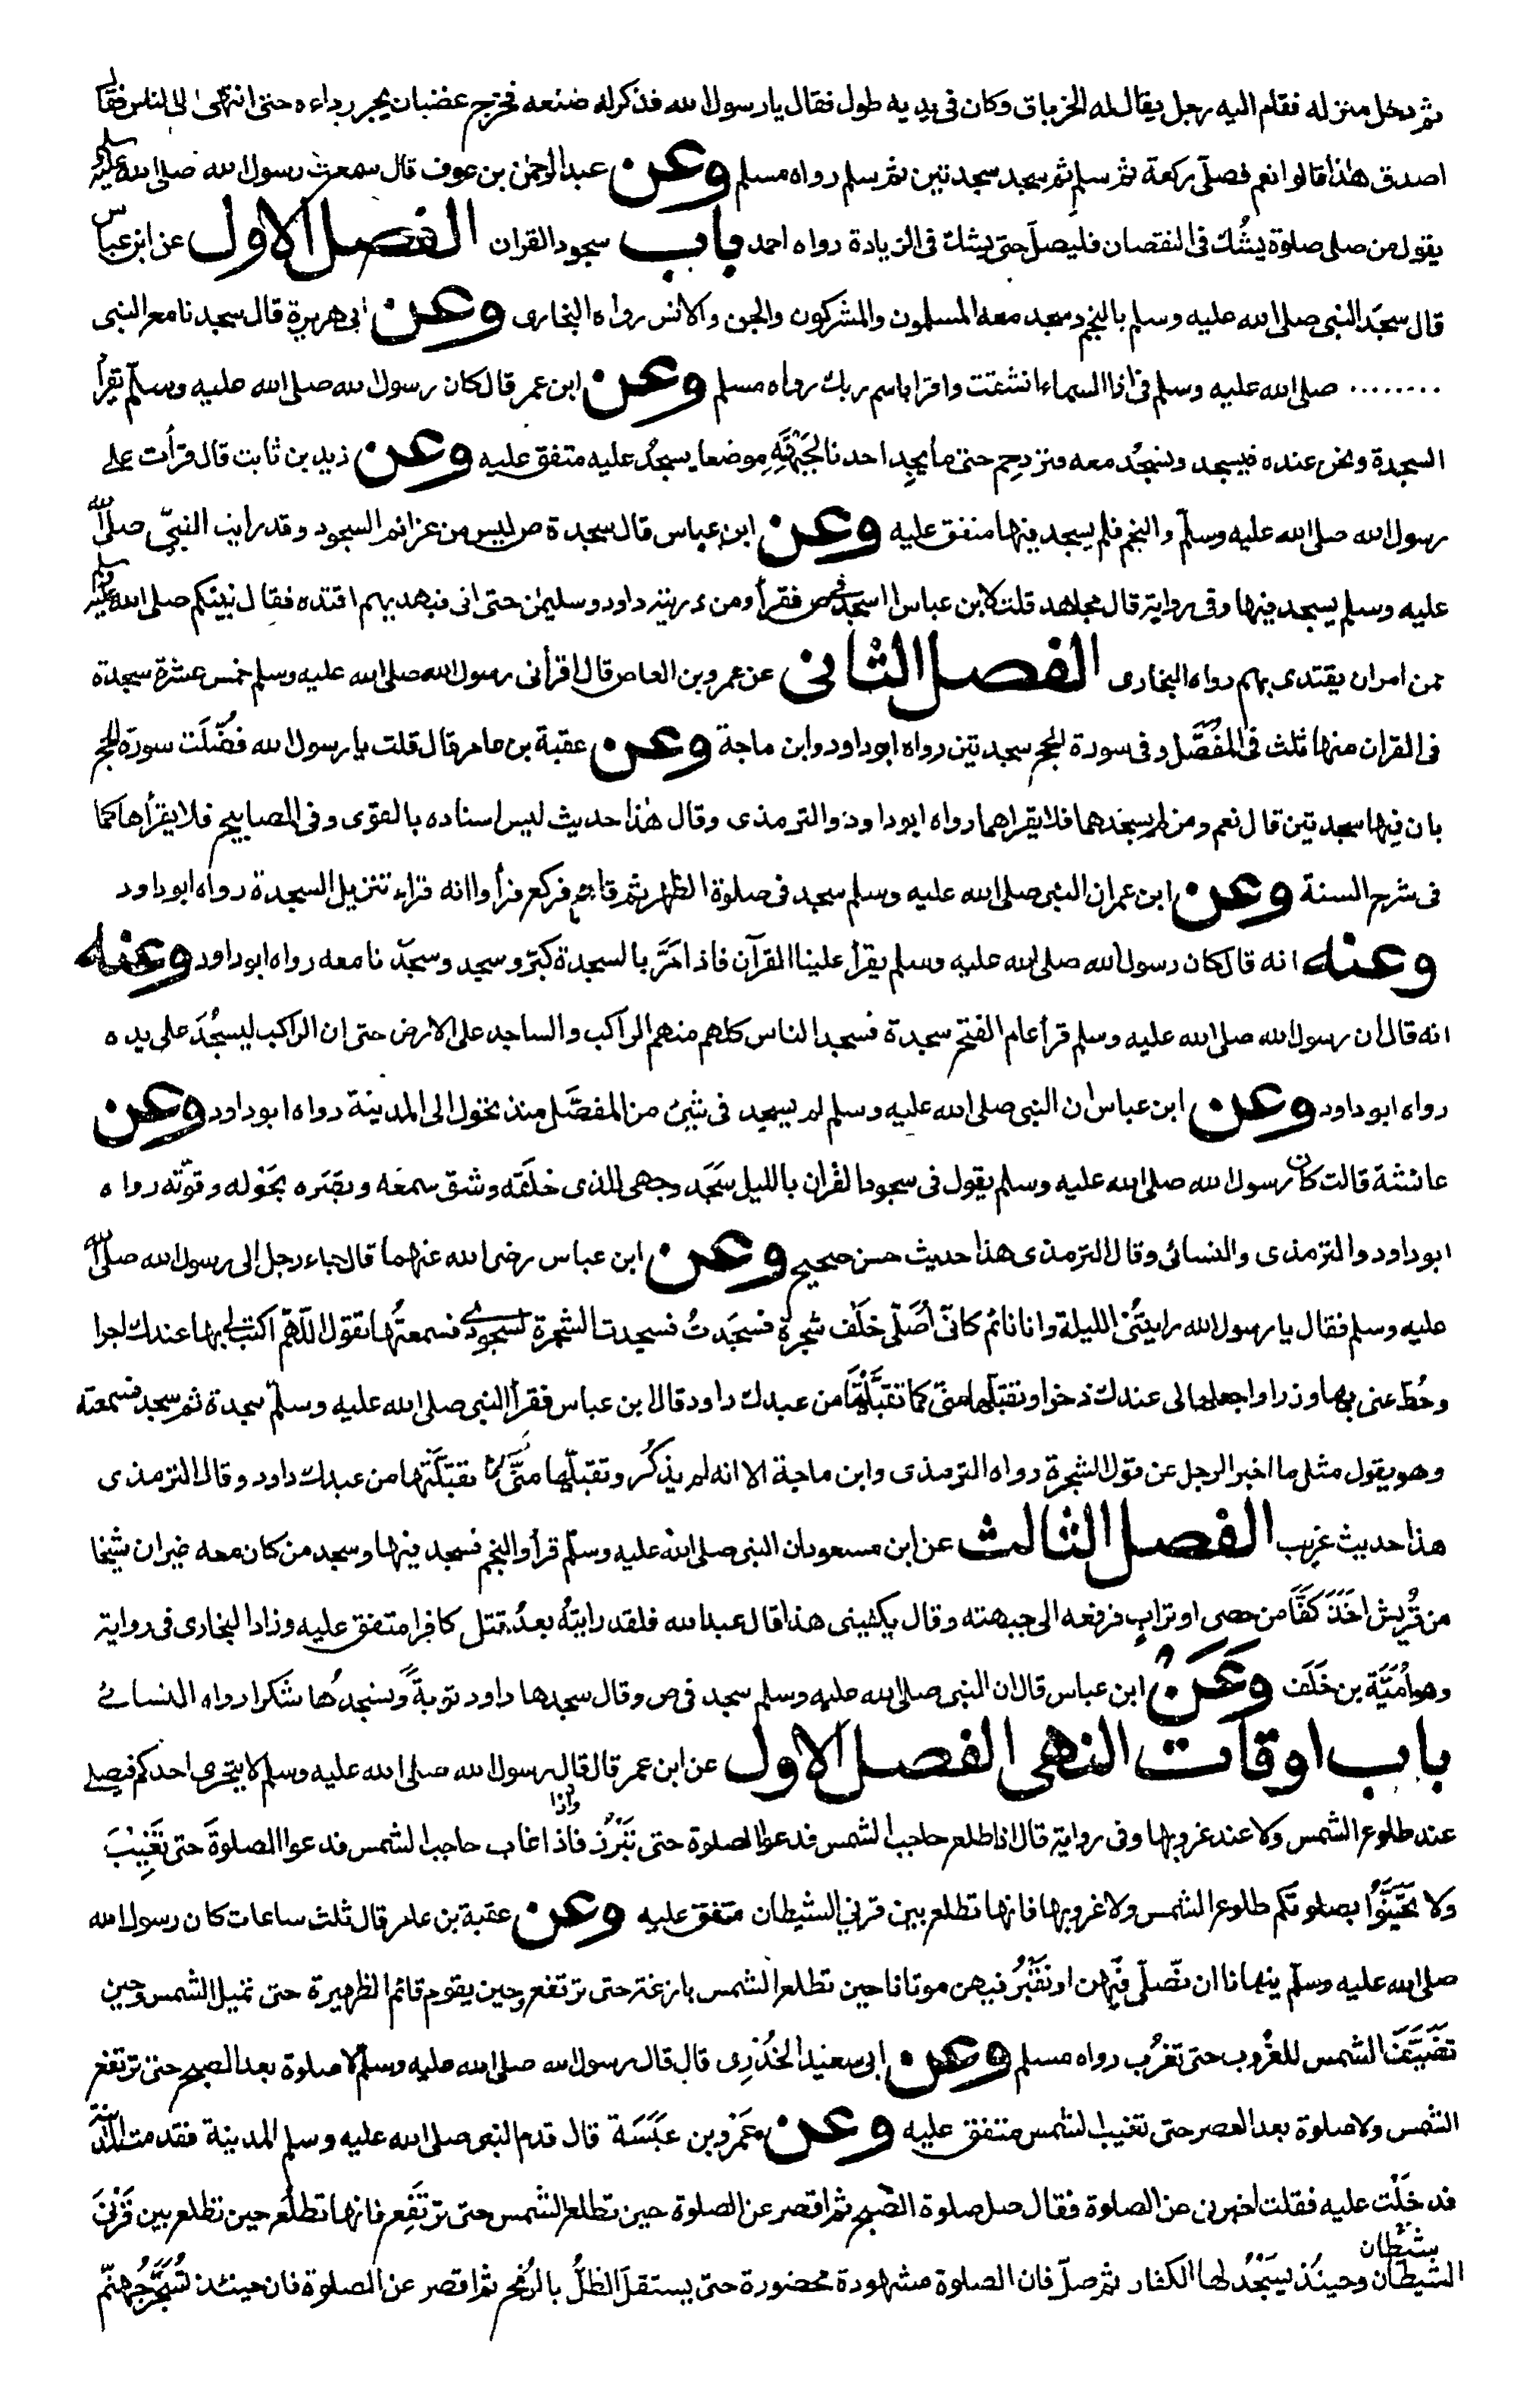 ثم دخل منزله فقام اليه رجل يقال له الخرباق وكان فى يديه طول فقال يا رسول الله فذكر له صنيعه فخرج غضبان يجر رداءه حتى انتهى الى الناس فقال
اصدق هٰذا قالوا نعم فصلى ركعة ثم سلم ثم سجد سجدتين ثم سلم رواه مسلم وعن عبد الرحمٰن بن عوف قال سمعت رسول الله صلى الله عليه وسلم
يقول من صلى صلوة يشُك فى النقصان فليصل حتى يشك فى الزيادة رواه احمد باب سجود القران الفصل الاول عن ابن عباس
قال سجد النبى صلى الله عليه وسلم بالنجم وسجد معه المسلمون والمشركون والجن والانس رواه البخارى وعن ابى هريرة قال سجدنا مع النبى
........ صلى الله عليه وسلم فى اذا السماء انشقت واقرا باسم ربك رواه مسلم وعن ابن عمر قال كان رسول الله صلى الله عليه وسلّم يقرأ
السجدة ونحن عنده فيسجد ونسجُد معه فنزدحِم حتى ما يجد احدنا لِجَبْهَتِهٖ موضعا يسجُد عليه متفق عليه وعن زيد بن ثابت قال قرأت على
رسول الله صلى الله عليه وسلّم والنجم فلم يسجد فيها متفق عليه وعن ابن عباس قال سجدة ص ليس من عزائم السجود وقد رايت النبيّ صلى الله
عليه وسلم يسجد فيها وفى رواية قال مجاهد قلت لابن عباس ااسجد فى ص فقرأ ومن ذريته داود وسليمٰن حتى اتى فبهدىهم اقتده فقال نبيكم صلى الله عليه وسلم
ممن امر ان يقتدى بهم رواه البخارى الفصل الثانى عن عمرو بن العاص قال اقرأنى رسول الله صلى الله عليه وسلم خمس عشرة سجدة
فى القران منها ثلث فى المُفَصَّل وفى سورة الحج سجدتين رواه ابو داود وابن ماجة وعن عقبة بن عامر قال قلت يا رسول الله فُضِّلَت سورة الحج
بان فيها سجدتين قال نعم ومن لم يسجدهما فلا يقراهما رواه ابو داود والترمذى وقال هٰذا حديث ليس اسناده بالقوى وفى المصابيح فلا يقرأها كما
فى شرح السنة وعن ابن عمر ان النبى صلى الله عليه وسلم سجد فى صلوة الظهر ثم قام فركع فرأوا انه قرأ تنزيل السجدة رواه ابو داود
وعنه انه قال كان رسول الله صلى الله عليه وسلم يقرأ علينا القرآن فاذا مَرَّ بالسجدة كبّر وسجد وسجدنا معه رواه ابو داود وعنه
انه قال ان رسول الله صلى الله عليه وسلم قرأ عام الفتح سجدة فسجد الناس كلهم منهم الراكب والساجد على الارض حتى ان الراكب ليسجُدَ على يده
رواه ابو داود وعن ابن عباس ان النبى صلى الله عليه وسلم لم يسجد فى شئ من المفصّل منذ تحول الى المدينة رواه ابو داود وعن
عائشة قالت كان رسول الله صلى الله عليه وسلم يقول فى سجود القران بالليل سَجَد وجهى للذى خلقه وشق سمعَه وبصَره بحَوْله وقوّته رواه
ابو داود والترمذى والنسائى وقال الترمذى هذا حديث حسن صحيح وعن ابن عباس رضى الله عنهما قال جاء رجل الى رسول الله صلى الله
عليه وسلم فقال يا رسول الله رايتُنى الليلة وانا نائم كانّى اُصَلّى خَلْف شجرة فسجَدتُ فسجدت الشجرة لسجودى فسمعتُها تقول اللّٰهم اكتب لى بها عندك اجرا
وحُطّ عنى بها وزرا واجعلها لى عندك ذخرا وتقبّلها منى كما تقبَّلْتَها من عبدك داود قال ابن عباس فقرأ النبى صلى الله عليه وسلّم سجدة ثم سجد فسمعته
وهو يقول مثل ما اخبر الرجل عن قول الشجرة رواه الترمذى وابن ماجة الا انه لم يذكُر وتقبلّها منّى كما تقبّلتَها من عبدك داود وقال الترمذى
هذا حديث غريب الفصل الثالث عن ابن مسعود ان النبى صلى الله عليه وسلّم قرأ والنجم فسجد فيها وسجد من كان معه غير ان شيخا
من قُريش اخَذَ كَفًّا من حصى او ترابٍ فرفعه الى جبهته وقال يكفينى هذا قال عبد الله فلقد رايتُه بعدُ قتل كافرا متفق عليه وزاد البخارى فى رواية
وهو اُمَيَّة بن خَلَف وَعَنْ ابن عباس قال ان النبى صلى الله عليه وسلم سجد فى ص وقال سجدها داود توبةً ونسجدُها شكرا رواه النسائى
باب اوقات النهى الفصل الاول عن ابن عمر قال قال رسول الله صلى الله عليه وسلم لا يتحرى احدكم فيصلى
عند طلوع الشمس ولا عند غروبها وفى رواية قال اذا طلع حاجب الشمس فدعوا الصلوة حتى تَبْرُز فاذا واذا غاب حاجب الشمس فدعوا الصلوةَ حتى تَغِيْبَ
ولا تَحَيَّنُوْا بصلوتكم طلوع الشمس ولا غروبها فانها تطلع بين قرني الشيطان متفق عليه وعن عقبة بن عامر قال ثلث ساعات كان رسول الله
صلى الله عليه وسلّم ينهانا ان نصّلى فيهن او نَقْبُرَ فيهن موتانا حين تطلع الشمس بازغة حتى ترتفع وحين يقوم قائم الظهيرة حتى تميل الشمس وحين
تَضَيَّفَ الشمس للغُروب حتى تغرُب رواه مسلم وعن ابى سعيد الخُدْرِى قال قال رسول الله صلى الله عليه وسلّم لا صلوة بعد الصبح حتى ترتفع
الشمس ولا صلوة بعد العصر حتى تغيب الشمس متفق عليه وعن عَمْرو بن عَبَسَة قال قدم النبى صلى الله عليه وسلم المدينة فقدمت المدينة
فدخَلْت عليه فقلت اخبرنى عن الصلوة فقال صل صلوة الصُبح ثم اقصر عن الصلوة حين تطلع الشمس حتى ترتَفِع فانها تطلُع حين تطلع بين قَرْنَىْ
الشيطان شيْطان وحينئذ يسْجُدُ لها الكفار ثم صلّ فان الصلوة مشهودة محضورة حتى يستقلّ الظلُّ بالرُمْح ثم اقصر عن الصلوة فان حينئذ تُسْجَرُ جهنّم